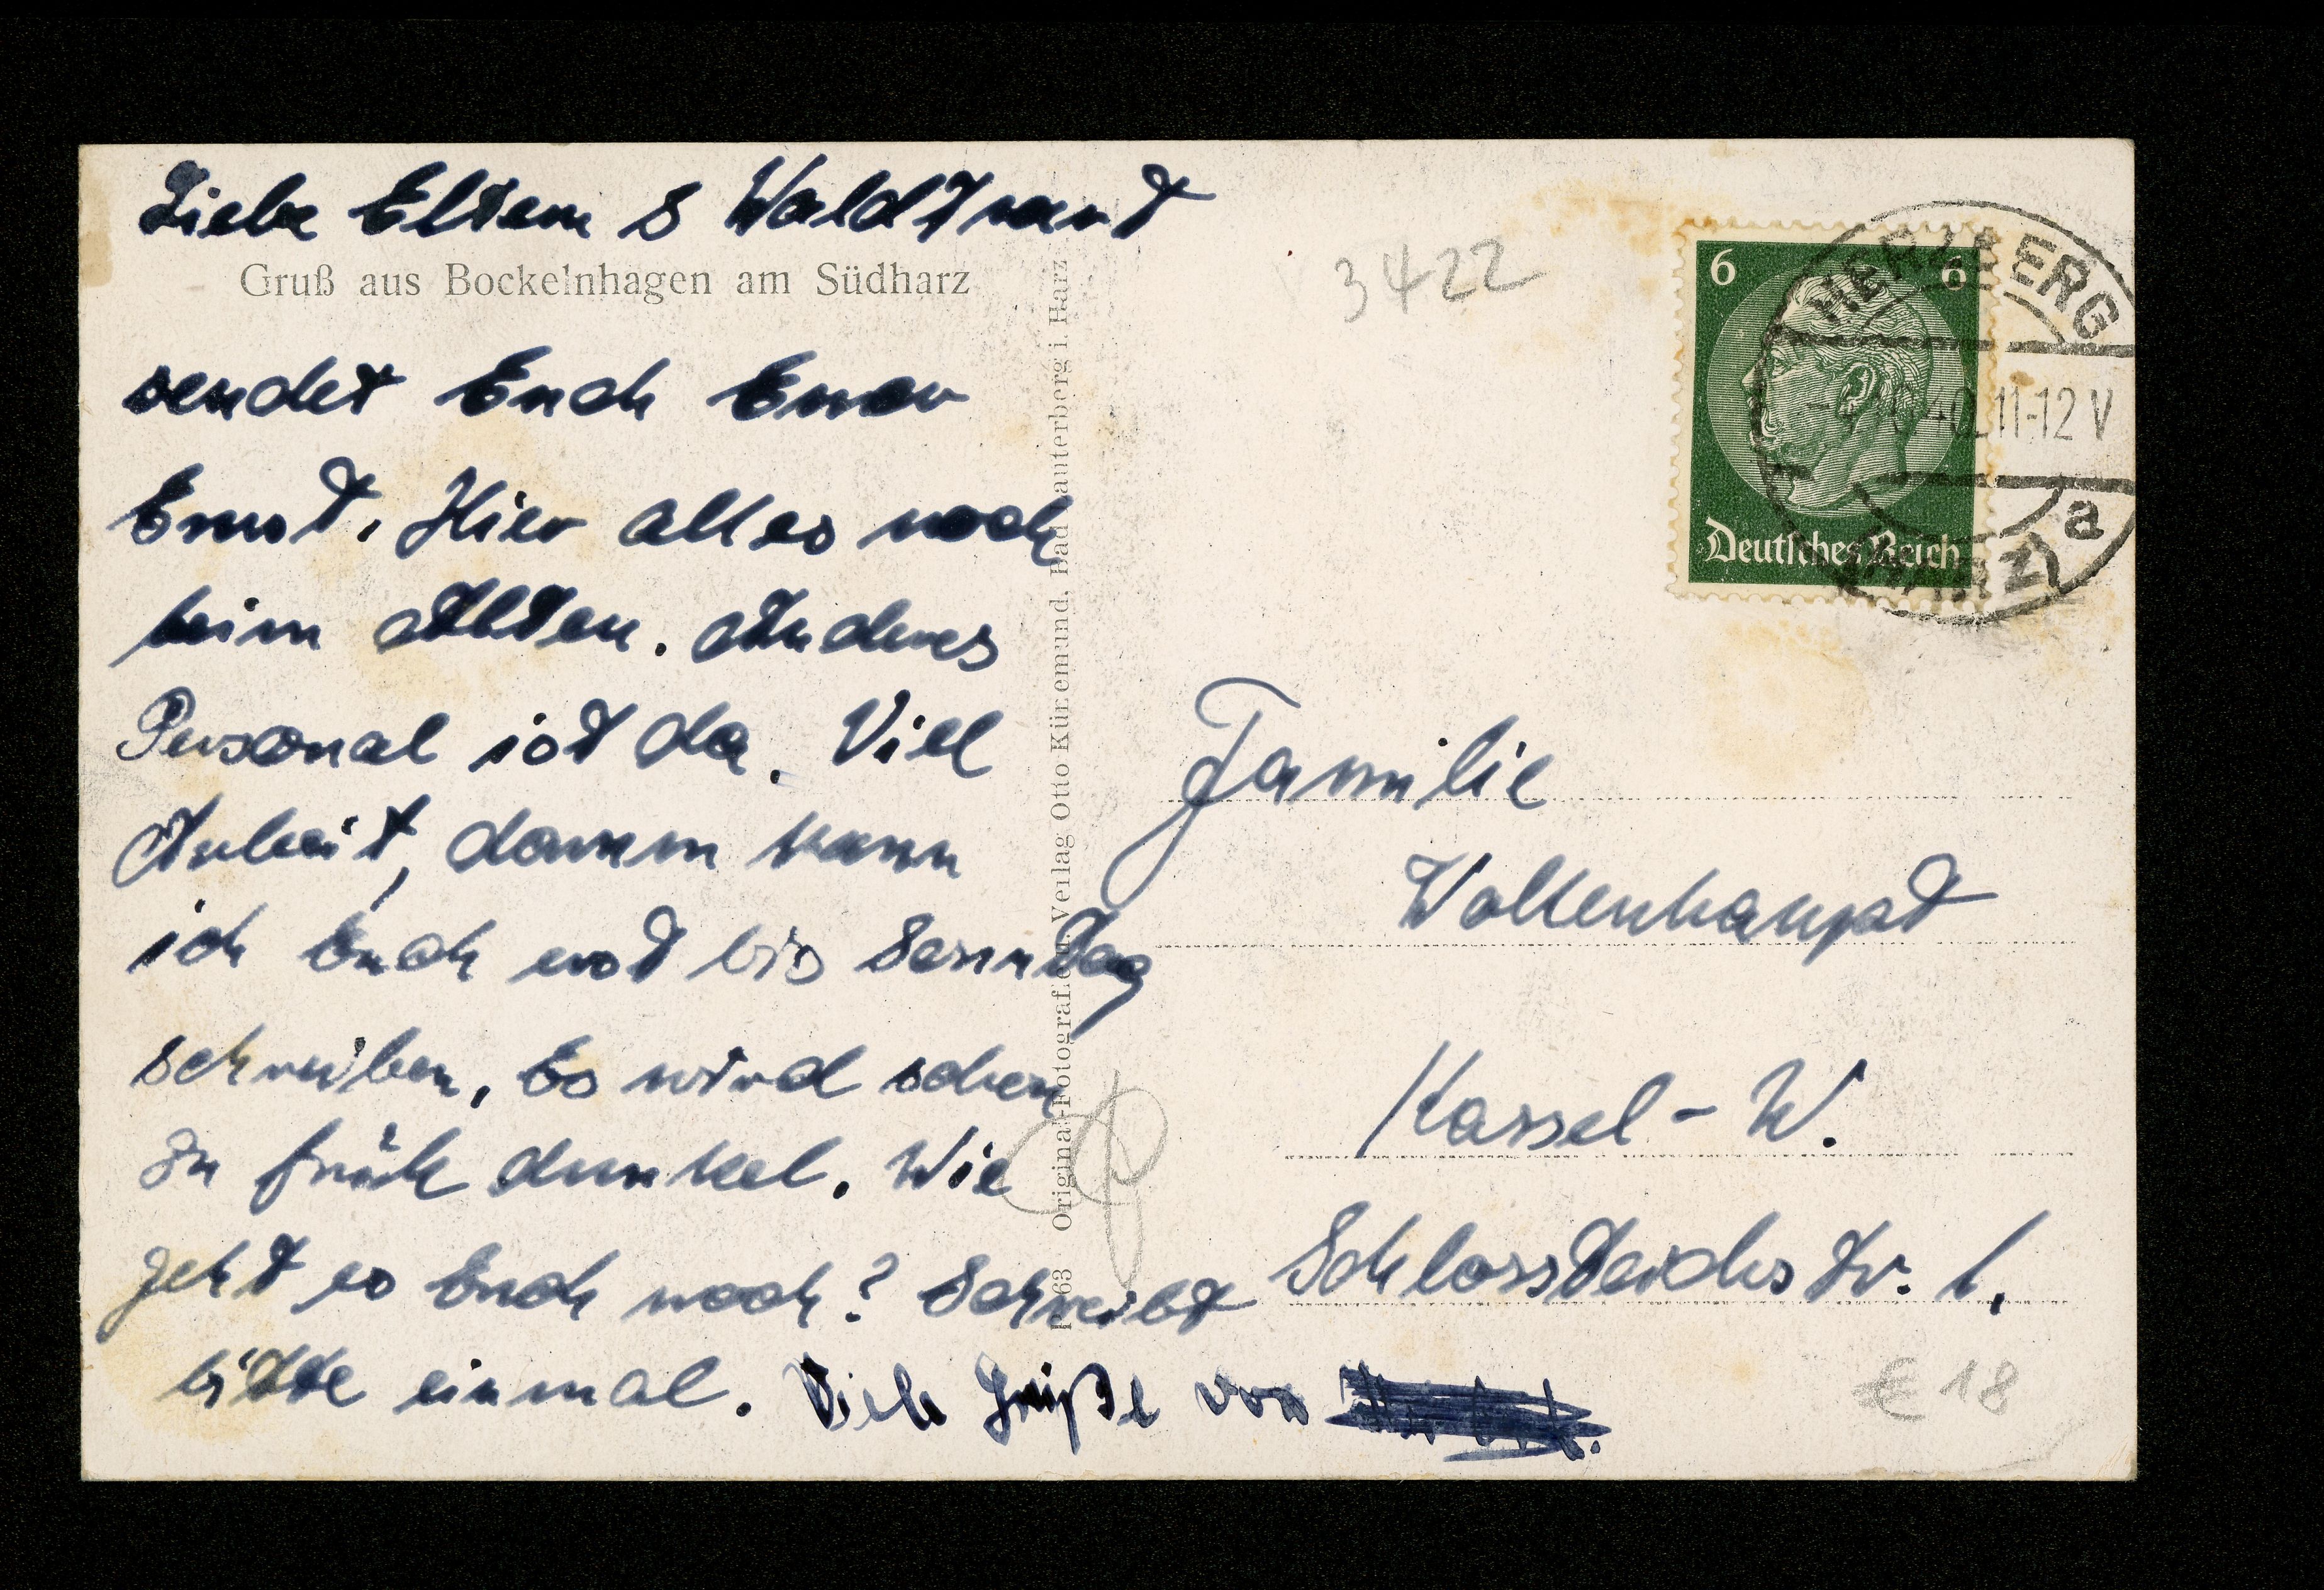 Liebe Eltern & Waldtraut
Gruß aus Bockelnhagen am Südharz
sendet Euch Euer
Ernst. Hier alles noch
beim Alten. Anderes
Personal ist da. Viel
Arbeit, darum kann
ich Euch erst bis Sonntag
schreiben. Es wird schon
zu früh dunkel. Wie
geht es Euch noch? Schreibt
bitte einmal. Viele Grüße von
P 63 Original-Fotograf. u. Verlag Otto Kürzemund, Bad Lauterberg i. Harz
3422
6 6
Deutsches Reich
HERZBERG
40 11-12 V
a
(HARZ)
Familie
Wollenhaupt
Kassel-W.
Schlossteichstr. 1.
€ 18